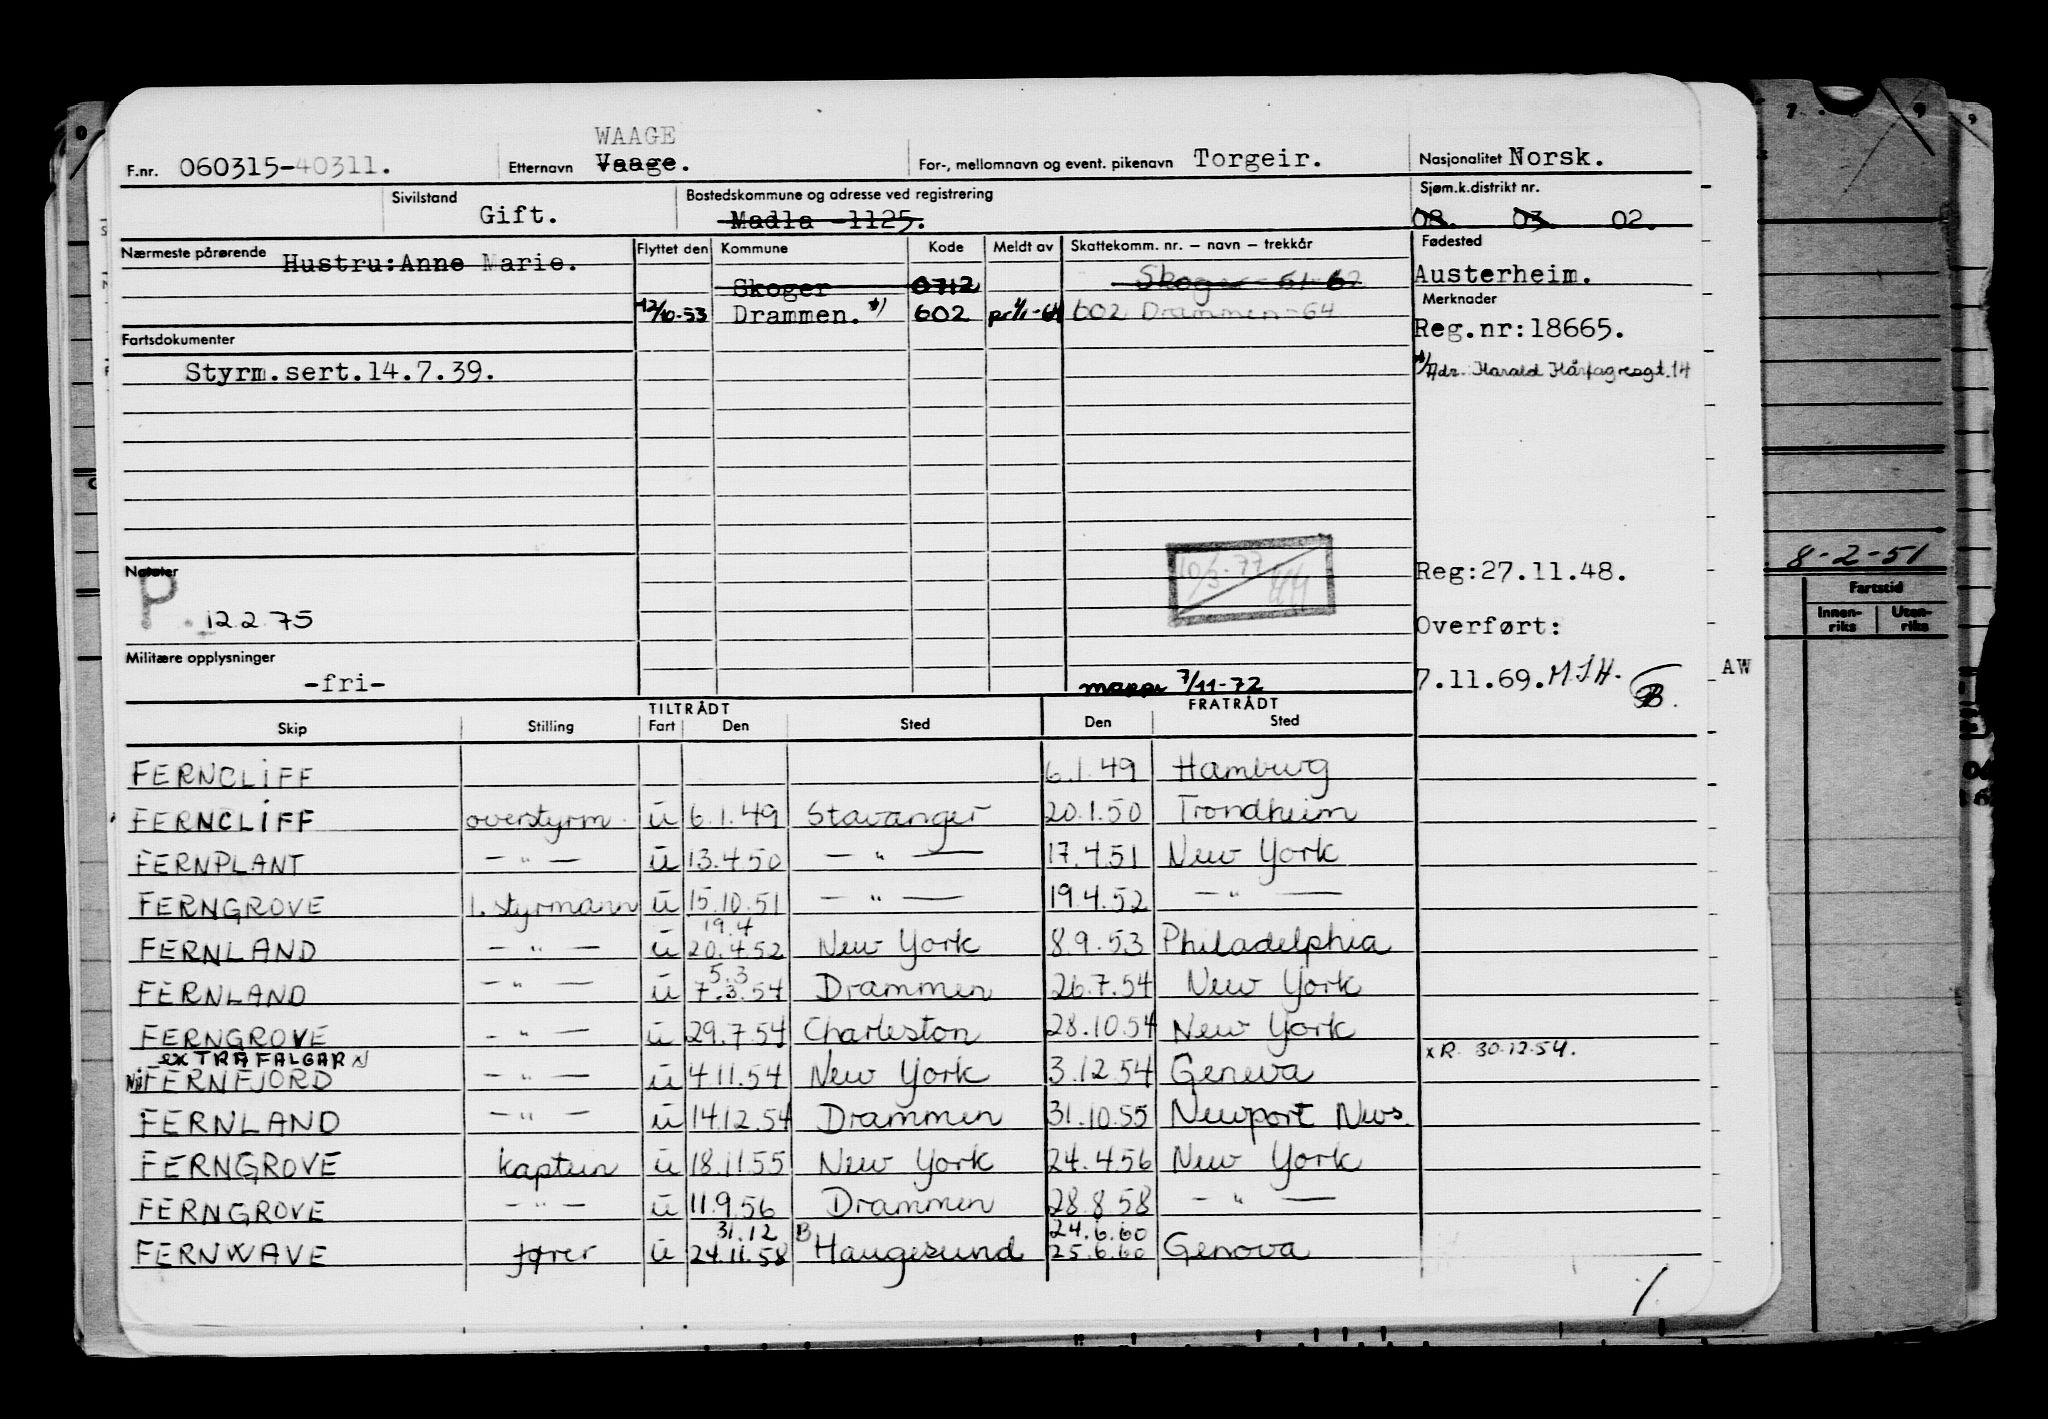 WAAGE
F.nr. 060315-40311. Etternavn Vaage. For-, mellomnavn og event. pikenavn Torgeir. Nasjonalitet Norsk.
Sivilstand Gift. Bostedskommune og adresse ved registrering Madla -1125. Sjøm.k.distrikt nr. 08. 03. 02.
Nærmeste pårørende Hustru:Anne Marie. Flyttet den Kommune Kode Meldt av Skattekomm. nr. – navn – trekkår Fødested
Skoger 0712 Skoger - 61-62 Austerheim.
12/10-53 Drammen. *) 602 pr 1/1-64 602 Drammen-64 Merknader
Reg.nr:18665.
Fartsdokumenter
Styrm.sert.14.7.39.
*) Adr. Harald Hårfagresgt. 14
10/3-77
8-2-51
Notater
P. 12.2.75
Reg:27.11.48.
Fartstid
Innen-riks Uten-riks
Overført:
Militære opplysninger
-fri-
7/11-72
7.11.69. M.J.H. B.
AW
TILTRÅDT FRATRÅDT
Skip Stilling Fart Den Sted Den Sted
FERNCLIFF 6.1.49 Hamburg
FERNCLIFF overstyrm. u 6.1.49 Stavanger 20.1.50 Trondheim
FERNPLANT — " — u 13.4.50 — " — 17.4.51 New York
FERNGROVE 1. styrmann u 15.10.51 — " — 19.4.52 — " —
19.4
FERNLAND — " — u 20.4.52 New York 8.9.53 Philadelphia
5.3
FERNLAND — " — u 7.3.54 Drammen 26.7.54 New York
FERNGROVE — " — u 29.7.54 Charleston 28.10.54 New York
ex TRAFALGAR N xR. 30.12.54.
Nå FERNFJORD — " — u 4.11.54 New York 3.12.54 Geneva
FERNLAND — " — u 14.12.54 Drammen 31.10.55 Newport News.
FERNGROVE kaptein u 18.11.55 New York 24.4.56 New York
FERNGROVE — " — u 11.9.56 Drammen 28.8.58 — " —
31.12 B 24.6.60
FERNWAVE fører u 24.11.58 Haugesund 25.6.60 Genova
1.